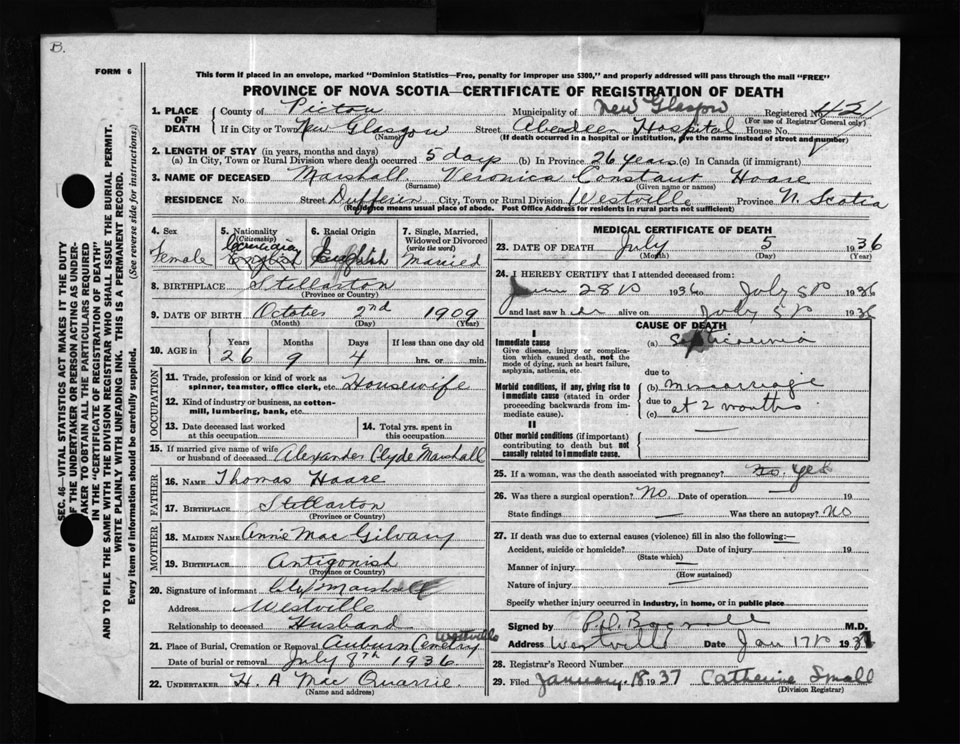 B.
FORM 6
This form if placed in an envelope, marked "Dominion Statistics—Free, penalty for improper use $300," and properly addressed will pass through the mail "FREE"
PROVINCE OF NOVA SCOTIA—CERTIFICATE OF REGISTRATION OF DEATH
1. PLACE OF DEATH County of Pictou Municipality of New Glasgow Registered No.
(For use of Registrar General only)
If in City or Town New Glasgow (Name) Street Aberdeen Hospital House No.
(If death occurred in a hospital or institution, give the name instead of street and number)
2. LENGTH OF STAY (in years, months and days)
(a) In City, Town or Rural Division where death occurred 5 days (b) In Province 26 years (c) In Canada (if immigrant)
3. NAME OF DECEASED Marshall Veronica Constant Hoare
(Surname) (Given name or names)
RESIDENCE No. Street Dufferin City, Town or Rural Division Westville Province N. Scotia
(Residence means usual place of abode. Post Office Address for residents in rural parts not sufficient)
4. Sex 5. Nationality (Citizenship) 6. Racial Origin 7. Single, Married, Widowed or Divorced (write the word)
Female Canadian English English Married
8. BIRTHPLACE Stellarton
(Province or Country)
9. DATE OF BIRTH October 2nd 1909
(Month) (Day) (Year)
10. AGE in Years Months Days If less than one day old
26 9 4 hrs. or min.
OCCUPATION
11. Trade, profession or kind of work as spinner, teamster, office clerk, etc. Housewife
12. Kind of industry or business, as cotton-mill, lumbering, bank, etc.
13. Date deceased last worked at this occupation 14. Total yrs. spent in this occupation
15. If married give name of wife or husband of deceased Alexander Clyde Marshall
FATHER
16. NAME Thomas Hoare
17. BIRTHPLACE Stellarton
(Province or Country)
MOTHER
18. MAIDEN NAME Annie MacGilvary
19. BIRTHPLACE Antigonish
(Province or Country)
20. Signature of informant Clyde Marshall
Address Westville
Relationship to deceased Husband
21. Place of Burial, Cremation or Removal Auburn Cemetry Westville
Date of burial or removal July 8th 1936
22. UNDERTAKER H. A MacQuarrie
(Name and address)
MEDICAL CERTIFICATE OF DEATH
23. DATE OF DEATH July 5 1936
(Month) (Day) (Year)
24. I HEREBY CERTIFY that I attended deceased from:
June 28th 1936 to July 5th 1936
and last saw her alive on July 5th 1936
CAUSE OF DEATH
I
Immediate cause
Give disease, injury or complication which caused death, not the mode of dying, such as heart failure, asphyxia, asthenia, etc.
(a) Septicaemia
due to
Morbid conditions, if any, giving rise to immediate cause (stated in order proceeding backwards from immediate cause).
(b) Miscarriage
due to at 2 months
(c)
II
Other morbid conditions (if important) contributing to death but not causally related to immediate cause.
25. If a woman, was the death associated with pregnancy? Yes
26. Was there a surgical operation? No Date of operation 19
State findings Was there an autopsy? No
27. If death was due to external causes (violence) fill in also the following:—
Accident, suicide or homicide? Date of injury 19
(State which)
Manner of injury
(How sustained)
Nature of injury
Specify whether injury occurred in industry, in home, or in public place
Signed by M.D.
Address Westville Date Jan 17th 1937
28. Registrar's Record Number
29. Filed January. 18 1937 Catherine Small
(Division Registrar)
SEC. 46—VITAL STATISTICS ACT MAKES IT THE DUTY
OF THE UNDERTAKER OR PERSON ACTING AS UNDER-
TAKER TO OBTAIN ALL THE PARTICULARS REQUIRED
IN THE "CERTIFICATE OF REGISTRATION OF DEATH"
AND TO FILE THE SAME WITH THE DIVISION REGISTRAR WHO SHALL ISSUE THE BURIAL PERMIT.
WRITE PLAINLY WITH UNFADING INK. THIS IS A PERMANENT RECORD.
Every item of information should be carefully supplied. (See reverse side for instructions;)